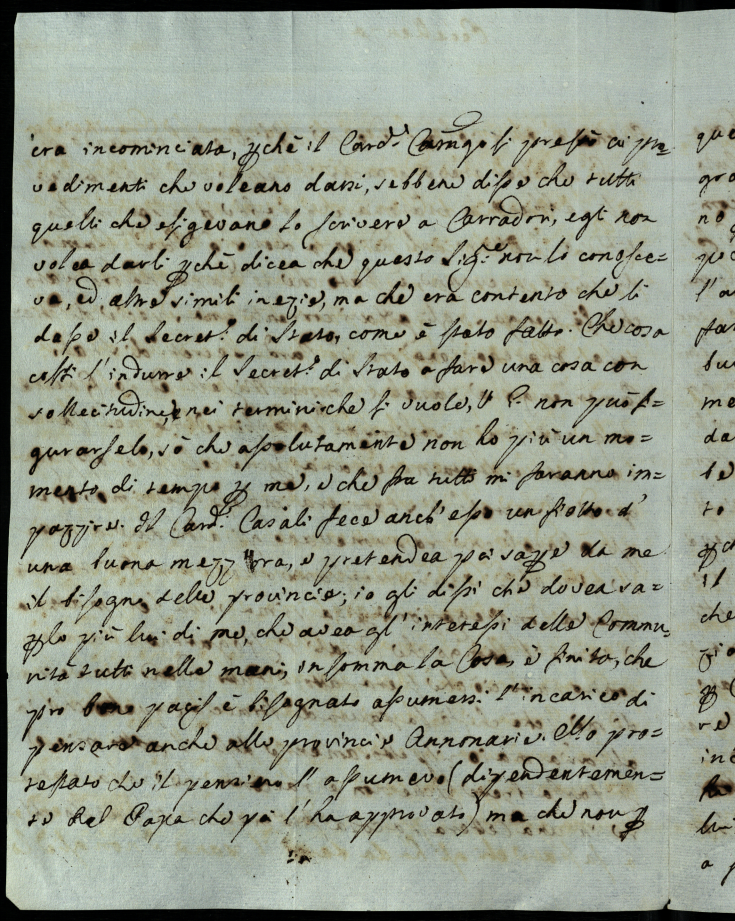 era incominciata, pchè il Card.l si prestò ai pro=
vedimenti che voleano darsi, sebbene disse che tutti
quelli che esigevano lo scrivere a Carradori, egli non
volea darli pchè dicea che questo Sig.re non lo conosce=
va, ed altre simili inezie, ma che era contento che li
dasse il Secret.o di Stato, come è stato fatto. Che cosa
costi l'indurre il Secret.o di Stato a fare una cosa con
sollecitudine, e nei termini che si vuole, V. E. non può fi=
gurarselo, so che assolutamente non ho più un mo=
mento di tempo p me, e che fra tutti mi faranno im=
pazzire. Il Card.l Casali fece anch'esso un fiotto d'
una buona mezz'ora, e pretendea poi sape da me
il bisogno delle provincie; io gli dissi che dovea sa=
plo più lui di me, che avea gl'interessi delle Commu=
nità tutti nelle mani, in somma la Cosa è finita, che
pro bono pacis è bisognato assumersi l'incarico di
pensare anche alle provincie Annonarie. Ho pro=
testato che il pensiero l'assumevo (dipendentemen=
te dal Papa che poi l'ha approvato) ma che non p